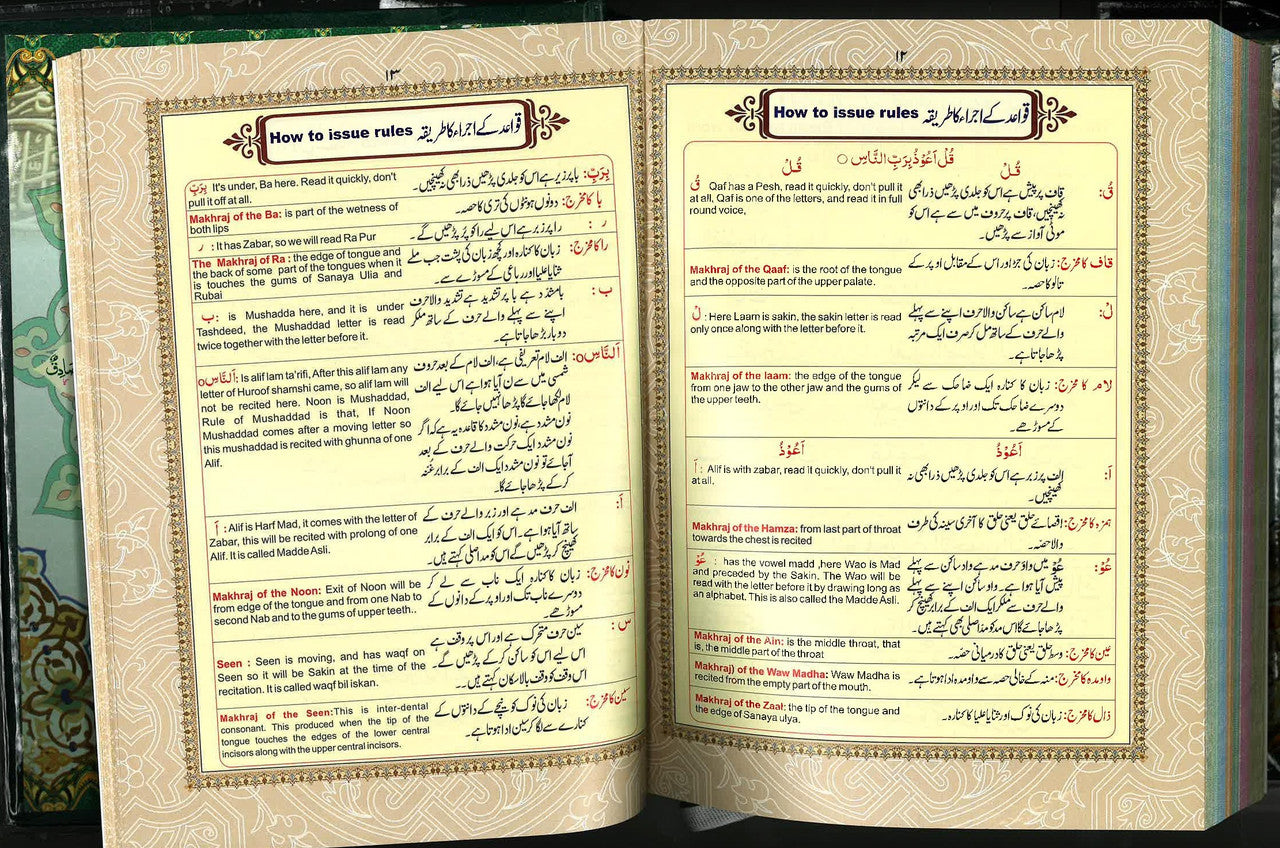 ١٢
How to issue rules قواعد کے اجراء کا طریقہ
قُلْ اَعُوْذُ بِرَبِّ النَّاسِ ○
قُلْ
قُلْ
قُ: قاف پر پیش ہے اس کو جلدی پڑھیں ذرا بھی
نہ کھینچیں، قاف پُر حروف میں سے ہے اس کو
موٹی آواز سے پڑھیں۔
قُ Qaf has a Pesh, read it quickly, don't pull it
at all, Qaf is one of the letters, and read it in full
round voice,
قاف کا مخرج: زبان کی جڑ اور اس کے مقابل اوپر کے
تالو کا حصہ۔
Makhraj of the Qaaf: is the root of the tongue
and the opposite part of the upper palate.
لْ: لام ساکن ہے ساکن والا حرف اپنے سے پہلے
والے حرف کے ساتھ مل کر صرف ایک مرتبہ
پڑھا جاتا ہے۔
لْ : Here Laam is sakin, the sakin letter is read
only once along with the letter before it.
لام کا مخرج: زبان کا کنارہ ایک ضاحک سے لیکر
دوسرے ضاحک تک اور اوپر کے دانتوں
کے مسوڑھے۔
Makhraj of the laam: the edge of the tongue
from one jaw to the other jaw and the gums of
the upper teeth.
اَعُوْذُ
اَعُوْذُ
اَ: الف پر زبر ہے اس کو جلدی پڑھیں ذرا بھی نہ
کھینچیں۔
اَ : Alif is with zabar, read it quickly, don't pull it
at all.
ہمزہ کا مخرج: اقصائے حلق یعنی حلق کا آخری سینہ کی طرف
والا حصّہ۔
Makhraj of the Hamza: from last part of throat
towards the chest is recited
عُوْ: عُوْ میں واؤ حرف مد ہے واؤ ساکن سے پہلے
پیش آیا ہوا ہے۔ واؤ ساکن اپنے سے پہلے
والے حرف سے ملکر ایک الف کے برابر کھینچ کر
پڑھا جائے گا اس مد کو مد اصلی بھی کہتے ہیں۔
عُوْ : has the vowel madd ,here Wao is Mad
and preceded by the Sakin. The Wao will be
read with the letter before it by drawing long as
an alphabet. This is also called the Madde Asli.
عین کا مخرج: وسط حلق یعنی حلق کا درمیانی حصّہ۔
Makhraj of the Ain: is the middle throat, that
is, the middle part of the throat
واؤ مدہ کا مخرج: منہ کے خالی حصہ سے واؤ مدہ ادا ہوتا ہے۔
Makhraj) of the Waw Madha: Waw Madha is
recited from the empty part of the mouth.
ذال کا مخرج: زبان کی نوک اور ثنایا علیا کا کنارہ۔
Makhraj of the Zaal: the tip of the tongue and
the edge of Sanaya ulya.
١٣
How to issue rules قواعد کے اجراء کا طریقہ
بِرَبِّ: با پر زیر ہے اس کو جلدی پڑھیں ذرا بھی نہ کھینچیں۔
بِرَبِّ It's under, Ba here. Read it quickly, don't
pull it off at all.
با کا مخرج: دونوں ہونٹوں کی تری کا حصہ۔
Makhraj of the Ba: is part of the wetness of
both lips
رَ : را پر زبر ہے اس لیے را کو پُر پڑھیں گے۔
رَ : It has Zabar, so we will read Ra Pur
را کا مخرج: زبان کا کنارہ اور کچھ زبان کی پشت جب ملے
ثنایا علیا اور رباعی کے مسوڑے سے۔
The Makhraj of Ra : the edge of tongue and
the back of some part of the tongues when it
is touches the gums of Sanaya Ulia and
Rubai
بّ : با مشدد ہے با پر تشدید ہے تشدید والا حرف
اپنے سے پہلے والے حرف کے ساتھ ملکر
دو بار پڑھا جاتا ہے۔
بّ: is Mushadda here, and it is under
Tashdeed, the Mushaddad letter is read
twice together with the letter before it.
اَلنَّاسِ○: الف لام تعریفی ہے، الف لام کے بعد حروف
شمسی میں سے ن آیا ہوا ہے اس لیے الف
لام لکھا جائے گا پڑھا نہیں جائے گا۔
نون مشدد ہے، نون مشدد کا قاعدہ یہ ہے کہ اگر
نون مشدد ایک حرکت والے حرف کے بعد
آ جائے تو نون مشدد ایک الف کے برابر غنہ
کر کے پڑھا جائے گا۔
اَلنَّاسِ○: Is alif lam ta'rifi, After this alif lam any
letter of Huroof shamshi came, so alif lam will
not be recited here. Noon is Mushaddad,
Rule of Mushaddad is that, If Noon
Mushaddad comes after a moving letter so
this mushaddad is recited with ghunna of one
Alif.
اَ: الف حرف مد ہے اور زبر والے حرف کے
ساتھ آیا ہوا ہے۔ اس کو ایک الف کے برابر
کھینچ کر پڑھیں گے اس کو مد اصلی کہتے ہیں۔
اَ : Alif is Harf Mad, it comes with the letter of
Zabar, this will be recited with prolong of one
Alif. It is called Madde Asli.
نون کا مخرج: زبان کا کنارہ ایک ناب سے لے کر
دوسرے ناب تک اور اوپر کے دانوں کے
مسوڑھے۔
Makhraj of the Noon: Exit of Noon will be
from edge of the tongue and from one Nab to
second Nab and to the gums of upper teeth..
س : سین حرف متحرک ہے اور اس پر وقف ہے
اس لیے اس کو ساکن کر کے پڑھیں گے۔
اس وقف کو وقف بالاسکان کہتے ہیں۔۔
Seen : Seen is moving, and has waqf on
Seen so it will be Sakin at the time of the
recitation. It is called waqf bil iskan.
سین کا مخرج: زبان کی نوک کو نیچے کے دانتوں کے
کنارے سے لگا کر سین ادا ہوتا ہے۔
Makhraj of the Seen:This is inter-dental
consonant. This produced when the tip of the
tongue touches the edges of the lower central
incisors along with the upper central incisors.